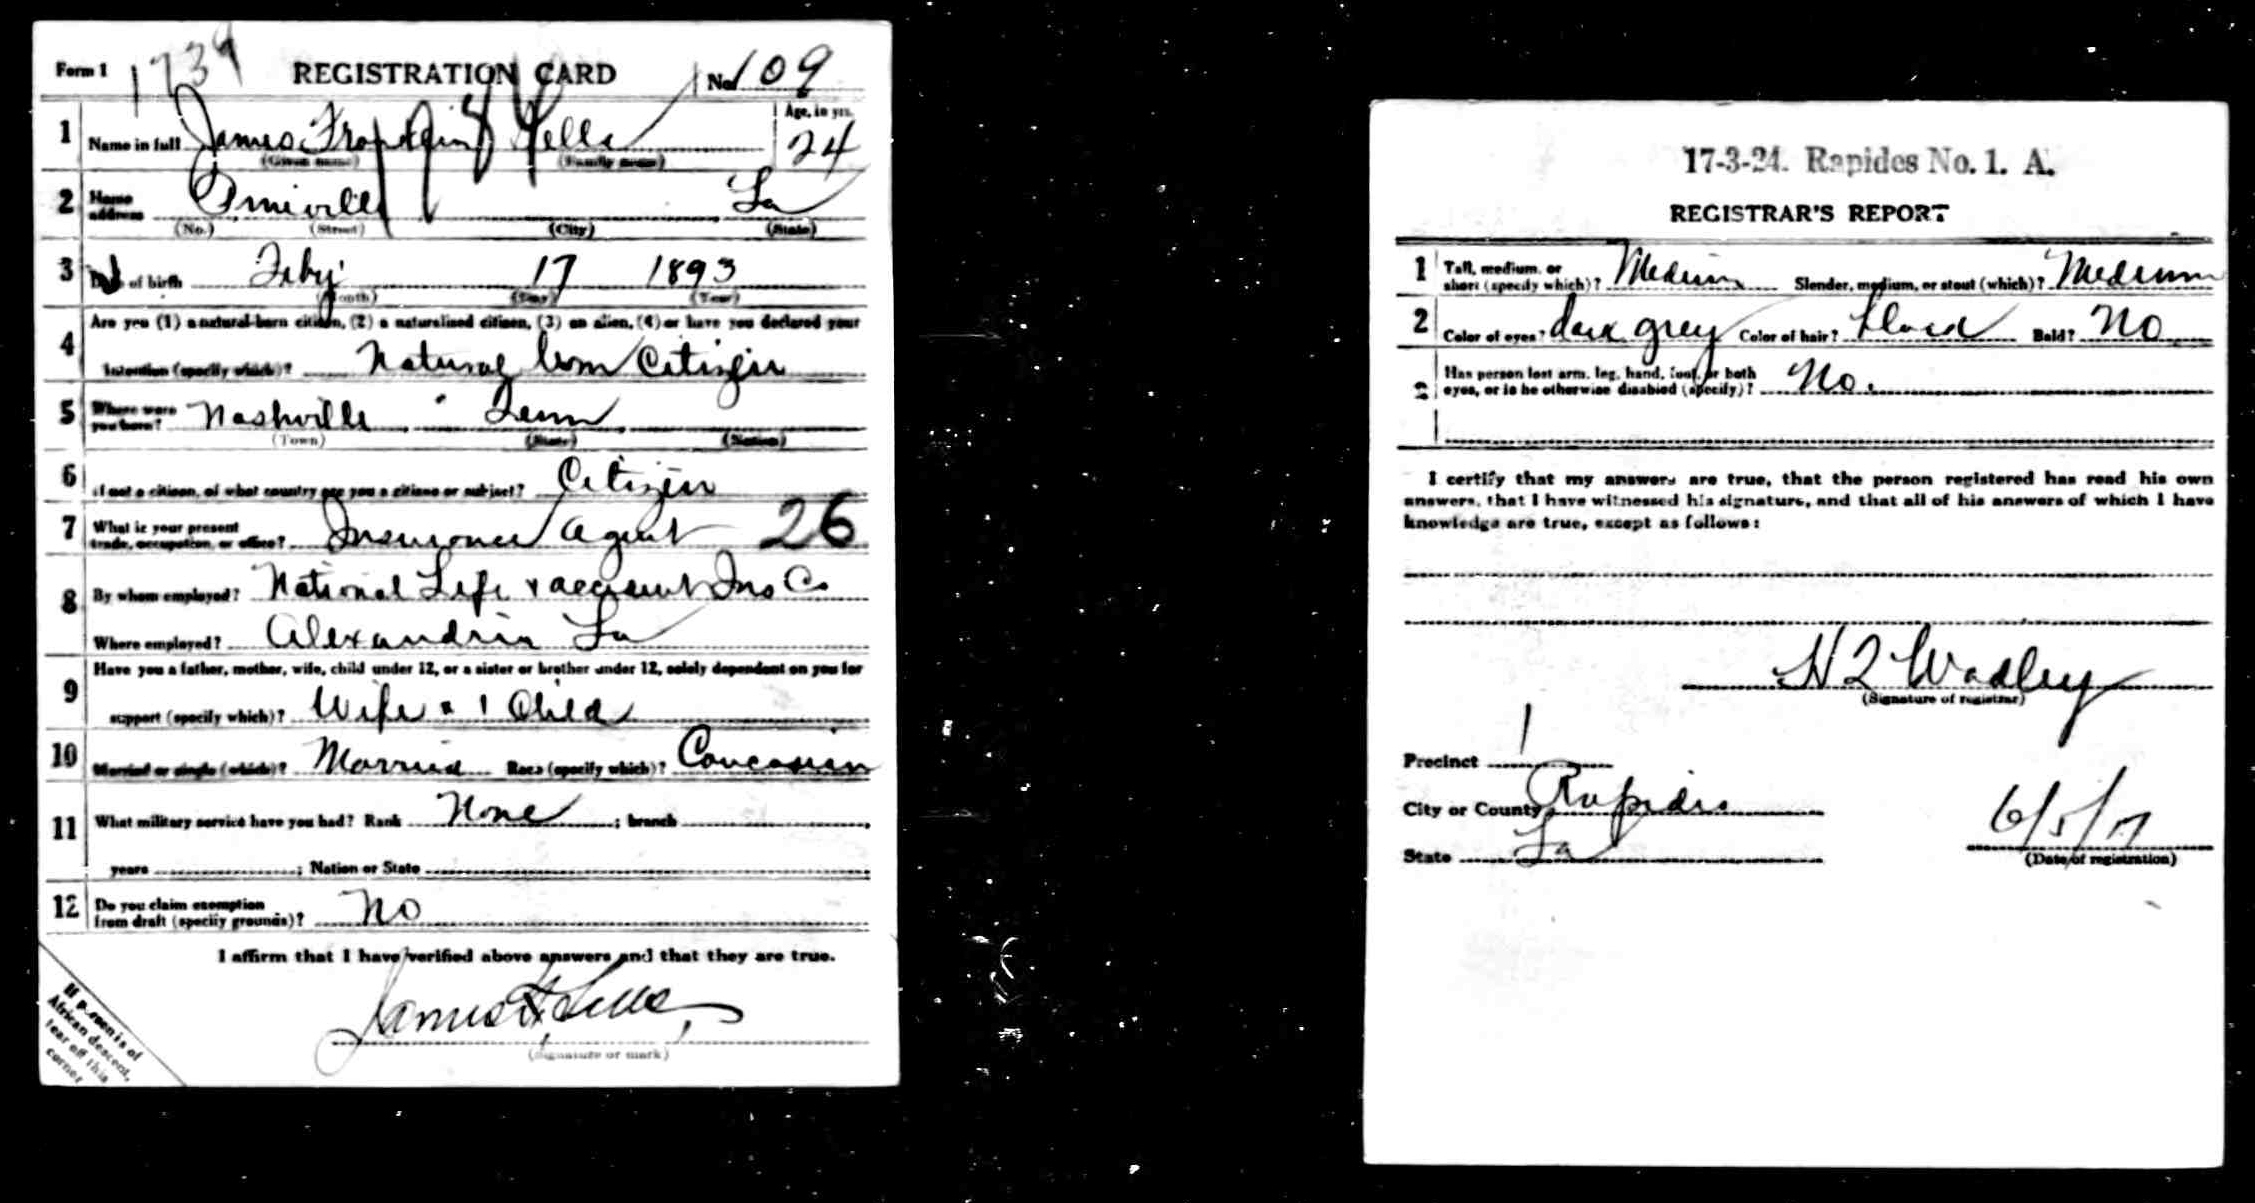 Form 1 1739 REGISTRATION CARD No. 109
1 Name in full James Franklin Sells Age, in yrs. 24
(Given name) (Family name)
2 Home address Pineville La
(No.) (Street) (City) (State)
3 Date of birth Feby 17 1893
(Month) (Day) (Year)
4 Are you (1) a natural-born citizen, (2) a naturalized citizen, (3) an alien, (4) or have you declared your
intention (specify which)? Natural born Citizen
5 Where were you born? Nashville Tenn
(Town) (State) (Nation)
6 If not a citizen, of what country are you a citizen or subject? Citizen
7 What is your present trade, occupation, or office? Insurance agent 26
8 By whom employed? National Life & accident Ins Co
Where employed? Alexandria La
9 Have you a father, mother, wife, child under 12, or a sister or brother under 12, solely dependent on you for
support (specify which)? Wife & 1 Child
10 Married or single (which)? Married Race (specify which)? Caucasian
11 What military service have you had? Rank None ; branch
years ; Nation or State
12 Do you claim exemption from draft (specify grounds)? No
I affirm that I have verified above answers and that they are true.
James F. Sells
(Signature or mark)
If person is of
African descent,
tear off this
corner
17-3-24. Rapides No. 1. A.
REGISTRAR'S REPORT
1 Tall, medium, or short (specify which)? Medium Slender, medium, or stout (which)? Medium
2 Color of eyes? dark grey Color of hair? Bald? No
3 Has person lost arm, leg, hand, foot, or both
eyes, or is he otherwise disabled (specify)? No.
I certify that my answers are true, that the person registered has read his own
answers, that I have witnessed his signature, and that all of his answers of which I have
knowledge are true, except as follows:
Wadley
(Signature of registrar)
Precinct 1
City or County Rapides
State La
6/5/17
(Date of registration)